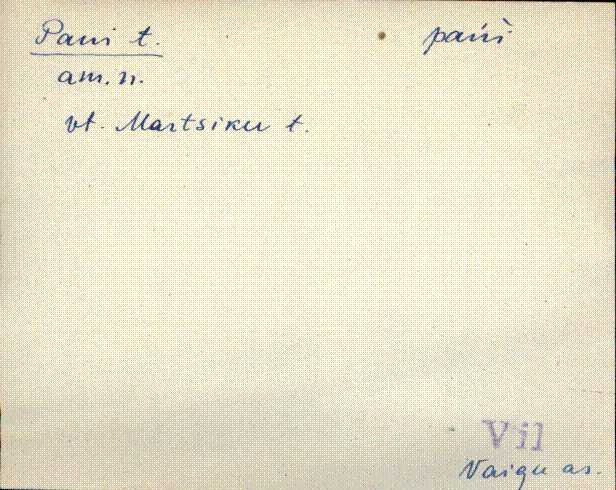 Pani t. pańi
am. n.
vt. Martsiku t.
Vil
Vaigu as.